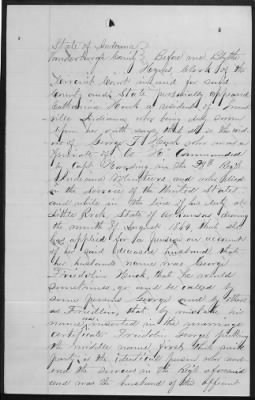 State of Indiana
Vanderburgh County } Before me Blythe
Hynes, Clerk of the
Circuit Court in and for said
County and State personally appeared
Catharine Huck a resident of Evans
ville Indiana who being duly sworn
upon her oath says that she is the wid
ow of George F Huck who was a
Private of Co "F" Commanded
by Capt in the Regt
Indiana Volunteers and who died
in the service of the United States
and while in the line of his duty at
Little Rock, State of Arkansas during
the month of August 1864, that she
has applied for a Pension on account
of her said deceased husband, that
her husbands name was George
Fridolin Huck, that he would
sometimes go and be called by
some persons George and by others
as Fridlin, that by mistake his
name was inserted in the marriage
certificate Fridolin George putting
the middle name first, that said
party is the identical person who
the service in the Regt aforesaid
and was the husband of this affiant